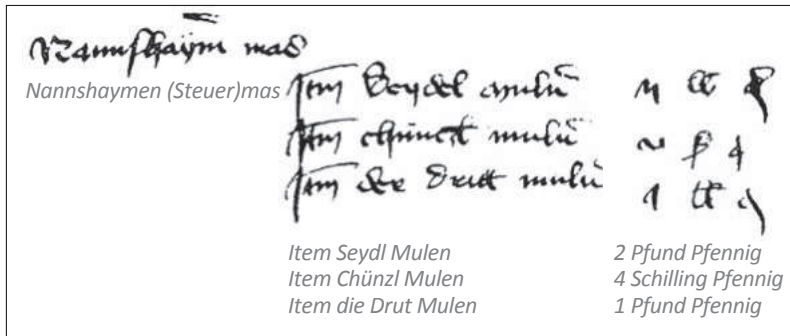 Nannshaym̄ mas
Nannshaymen (Steuer)mas
Itm Seydel mulñ ij lb d
Itm mulñ ß d
Itm der dritt mulñ j lb d
Item Seydl Mulen 2 Pfund Pfennig
Item Chünzl Mulen 4 Schilling Pfennig
Item die Drut Mulen 1 Pfund Pfennig